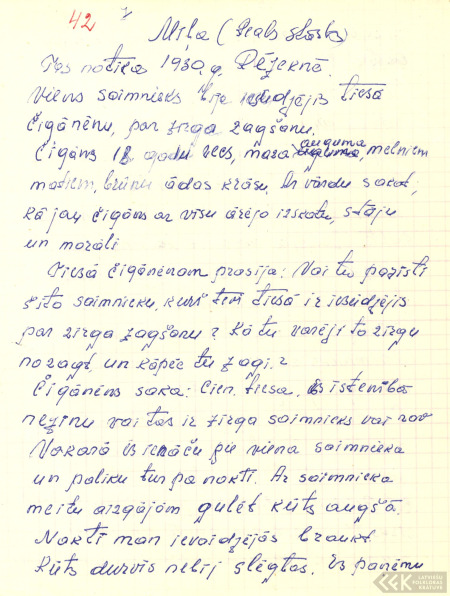 42
Mīļa (Reals stāsts)
Tas notika 1930. g. Rēzeknē.
Viens saimnieks bija iesūdzējis tiesā
čigānēnu, par zirga zagšanu.
Čigāns 18 gadu vecs, maza auguma, melniem
matiem, brūnu ādas krāsu. Ar vārdu sakot,
kā jau čigāns ar visu ārējo izskatu, stāju
un morāli
Tiesā čigānēnam prasīja: Vai tu pazīsti
šito saimnieku, kurš tevi tiesā ir iesūdzējis
par zirga zagšanu? Kā tu varēji to zirgu
nozagt, un kāpēc tu zagi?
Čigānēns saka: Cien. tiesa. Es īstenībā
nezinu vai tas ir zirga saimnieks vai nav
Vakarā es ienāču pie viena saimnieka
un paliku tur pa nakti. Ar saimnieka
meitu aizgājām gulēt kūts augšā.
Naktī man ievaidzējās braukt
kūts durvis nebij slēgtas. Es paņēmu
LATVIEŠU
FOLKLORAS
KRĀTUVE